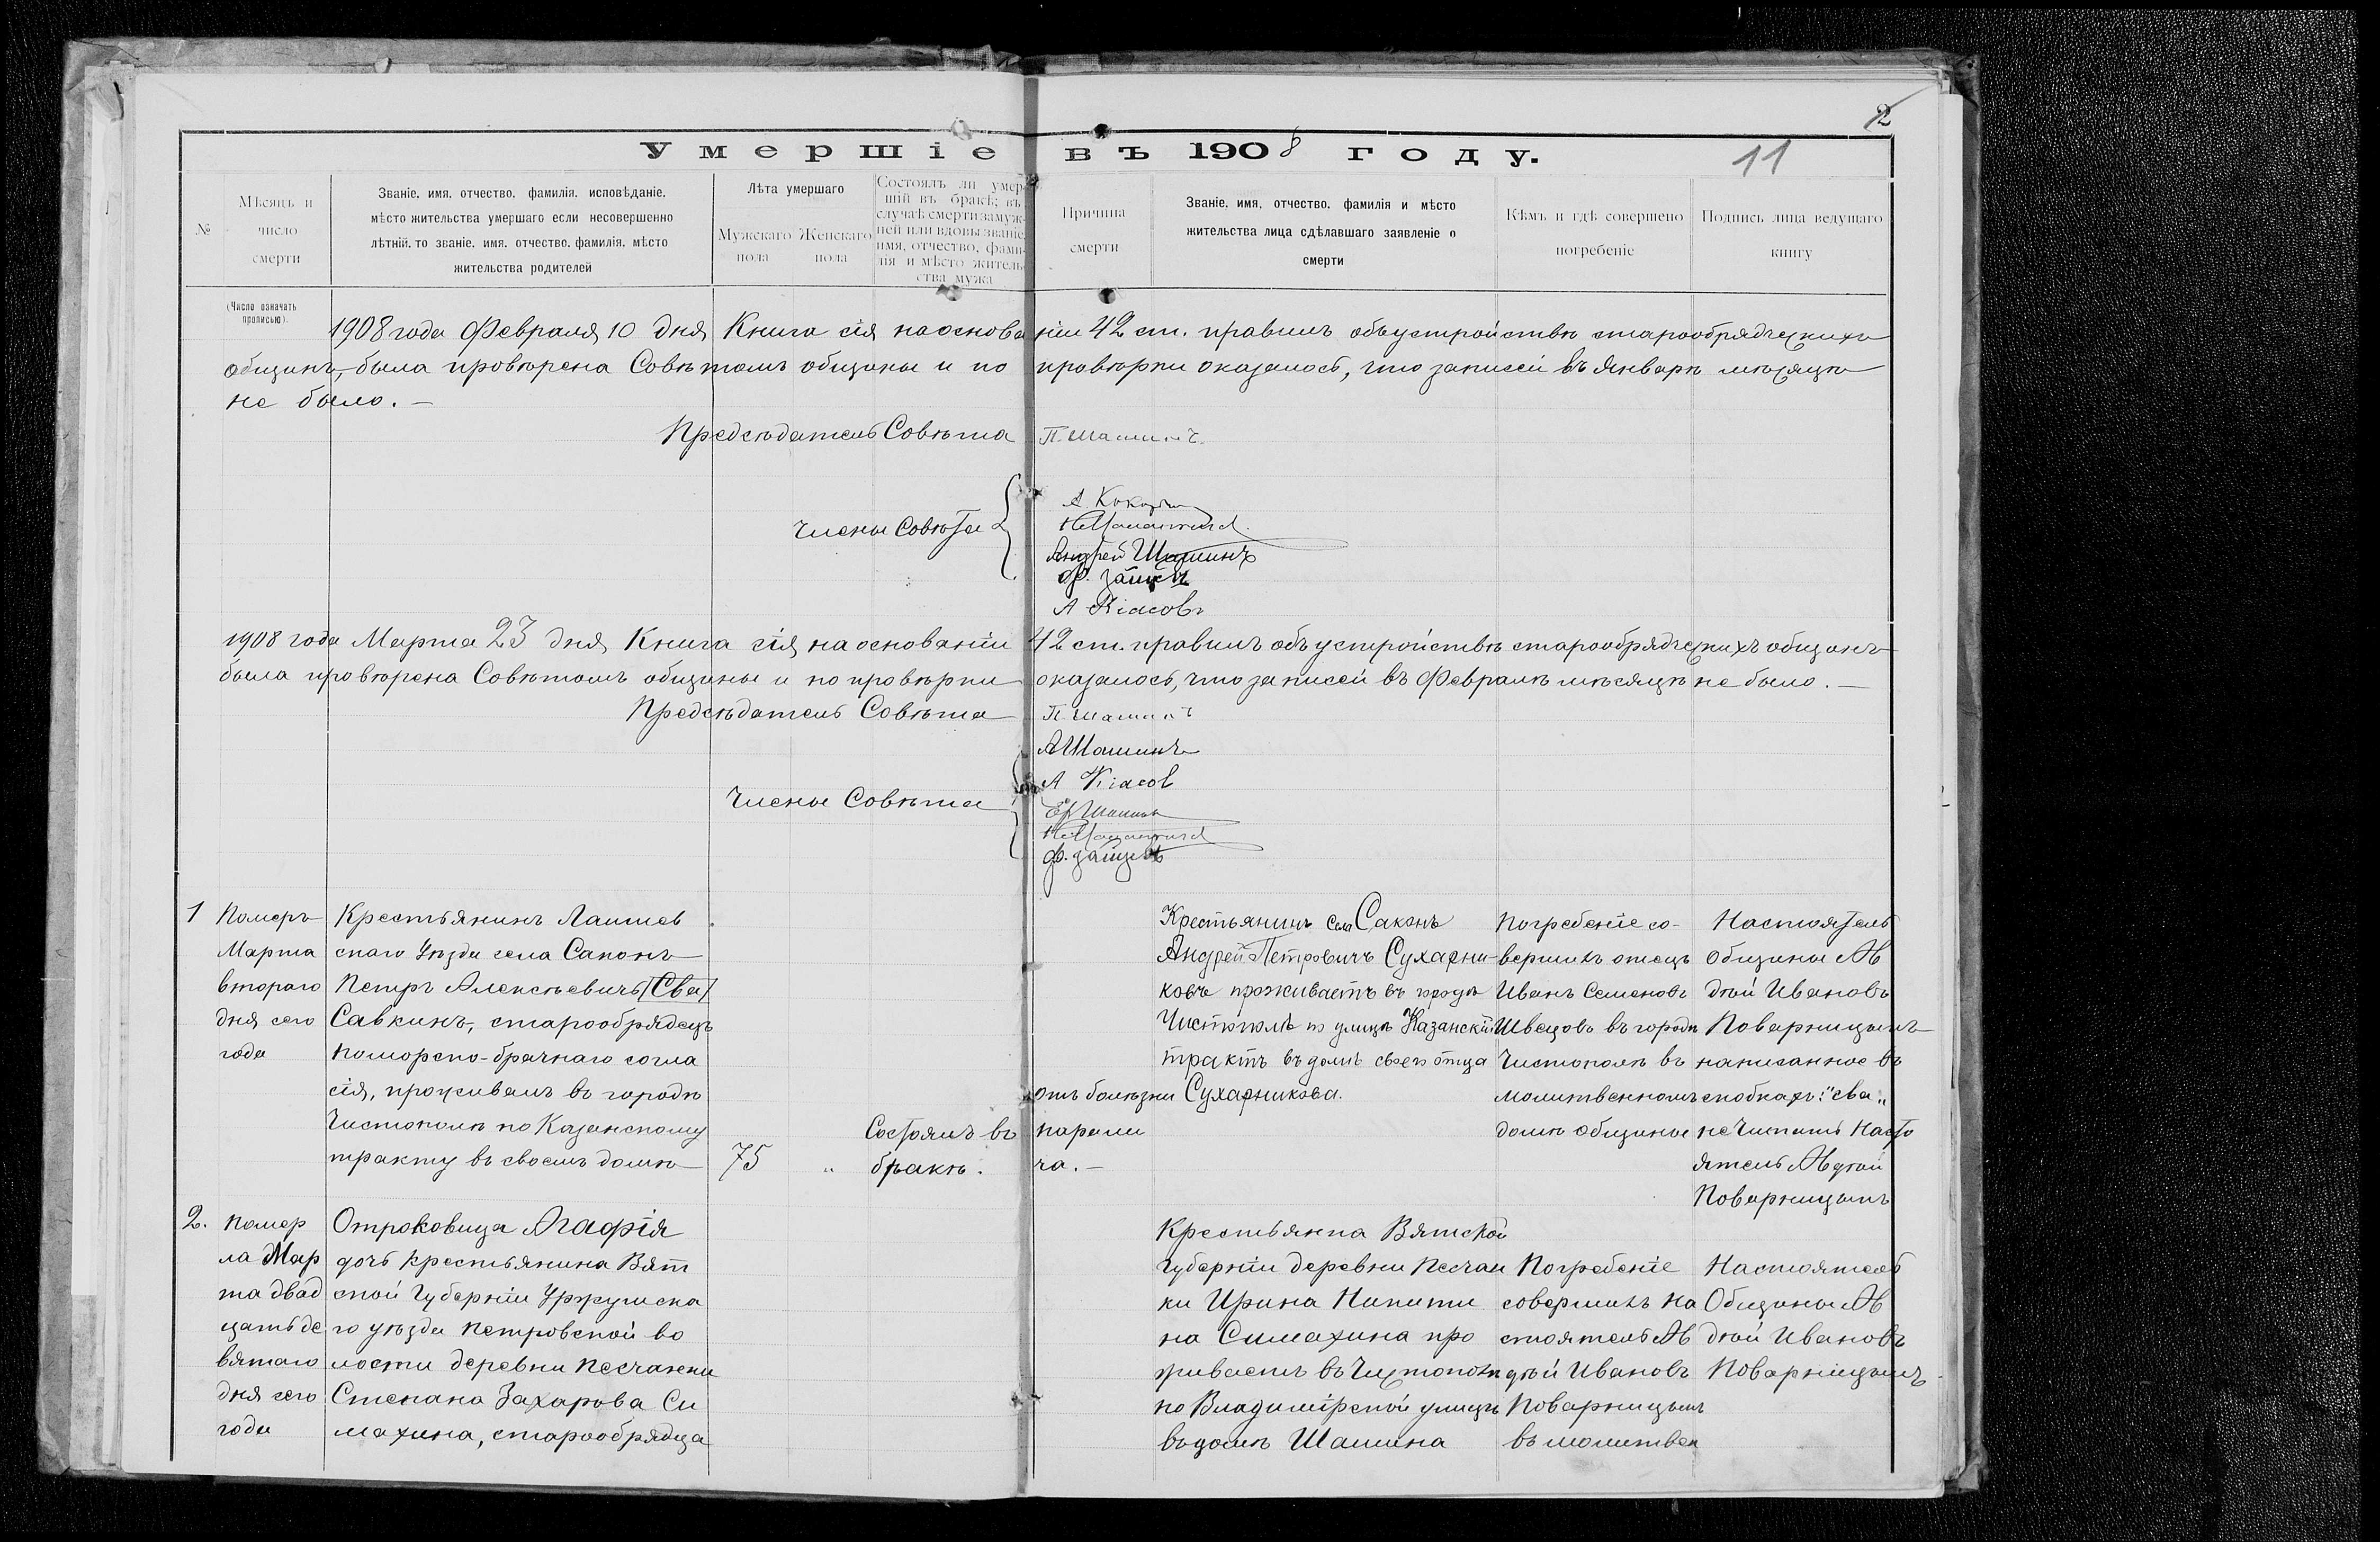 2
Умершіе въ 1908 году.
11
№
Мѣсяцъ и
число
смерти
Званіе, имя, отчество, фамилія, исповѣданіе,
мѣсто жительства умершаго если несовершенно
лѣтній, то званіе, имя, отчество, фамилія, мѣсто
жительства родителей
Лѣта умершаго
Мужскаго Женскаго
пола пола
Состоялъ ли умер-
шій въ бракѣ; въ
случаѣ смерти замуж-
ней или вдовы званіе,
имя, отчество, фами-
лія и мѣсто житель-
ства мужа
Причина
смерти
Званіе, имя, отчество, фамилія и мѣсто
жительства лица сдѣлавшаго заявленіе о
смерти
Кѣмъ и гдѣ совершено
погребеніе
Подпись лица ведущаго
книгу
(Число означать
прописью).
1908 года Февраля 10 дня Книга сія на основаніи 42 ст. правилъ объ устройствѣ старообрядческихъ
общинъ, была провѣрена Совѣтомъ общины и по провѣрки оказалось, что записей въ Январѣ мѣсяцѣ
не было. —
Предсѣдатель Совѣта П. Шашинъ.
Члены Совѣта
Андрей Шашинъ
Ф. Зайцевъ
А Кіасовъ
1908 года Марта 23 дня Книга сія на основаніи 42 ст. правилъ объ устройствѣ старообрядческихъ общинъ
была провѣрена Совѣтомъ общины и по провѣрки оказалось, что записей въ Февралѣ мѣсяцѣ не было. —
Предсѣдатель Совѣта П. Шашинъ
А Шашинъ
А Кіасов
Члены Совѣта
Ф. Зайцевъ
1
Померъ
Марта
второго
дня сего
года
Крестьянинъ Лаишев
скаго Уѣзда села Саконъ
Петръ Алексѣевичъ (Сва)
Савкинъ, старообрядецъ
поморско-брачнаго согла
сія, проживалъ въ городѣ
Чистополѣ по Казанскому
тракту въ своемъ домѣ
75 "
Состоялъ въ
бракѣ.
отъ болѣзни
парали
ча. —
Крестьянинъ села Саконъ
Андрей Петровичъ Сухарни-
ковъ проживаетъ въ городѣ
Чистополѣ по улицѣ Казанскій
трактъ въ домѣ своего отца
Сухарникова.
Погребеніе со-
вершилъ отецъ
Иванъ Семеновъ
Швецовъ въ городѣ
Чистополѣ въ
молитвенномъ
домѣ общины
Настоятель
общины Ав
дѣй Ивановъ
Поварницынъ
написанное въ
скобкахъ: "сва"
не читать Насто
ятель Авдѣй
Поварницынъ
2.
Помер
ла Мар
та двад
цать де
вятаго
дня сего
года
Отроковица Агафія
дочь крестьянина Вят
ской Губерніи Уржумска
го уѣзда Петровской во
лости деревни Песчанки
Степана Захарова Си
махина, старообрядца
Крестьянка Вятской
Губерніи деревни Песчан
ки Ирина Никити
на Симахина про
живаетъ въ Чистополѣ
по Владимірской улицѣ
въ домѣ Шашина
Погребеніе
совершилъ на
стоятель Ав
дѣй Ивановъ
Поварницынъ
въ молитвен
Настоятель
Общины Ав
дѣй Ивановъ
Поварницынъ